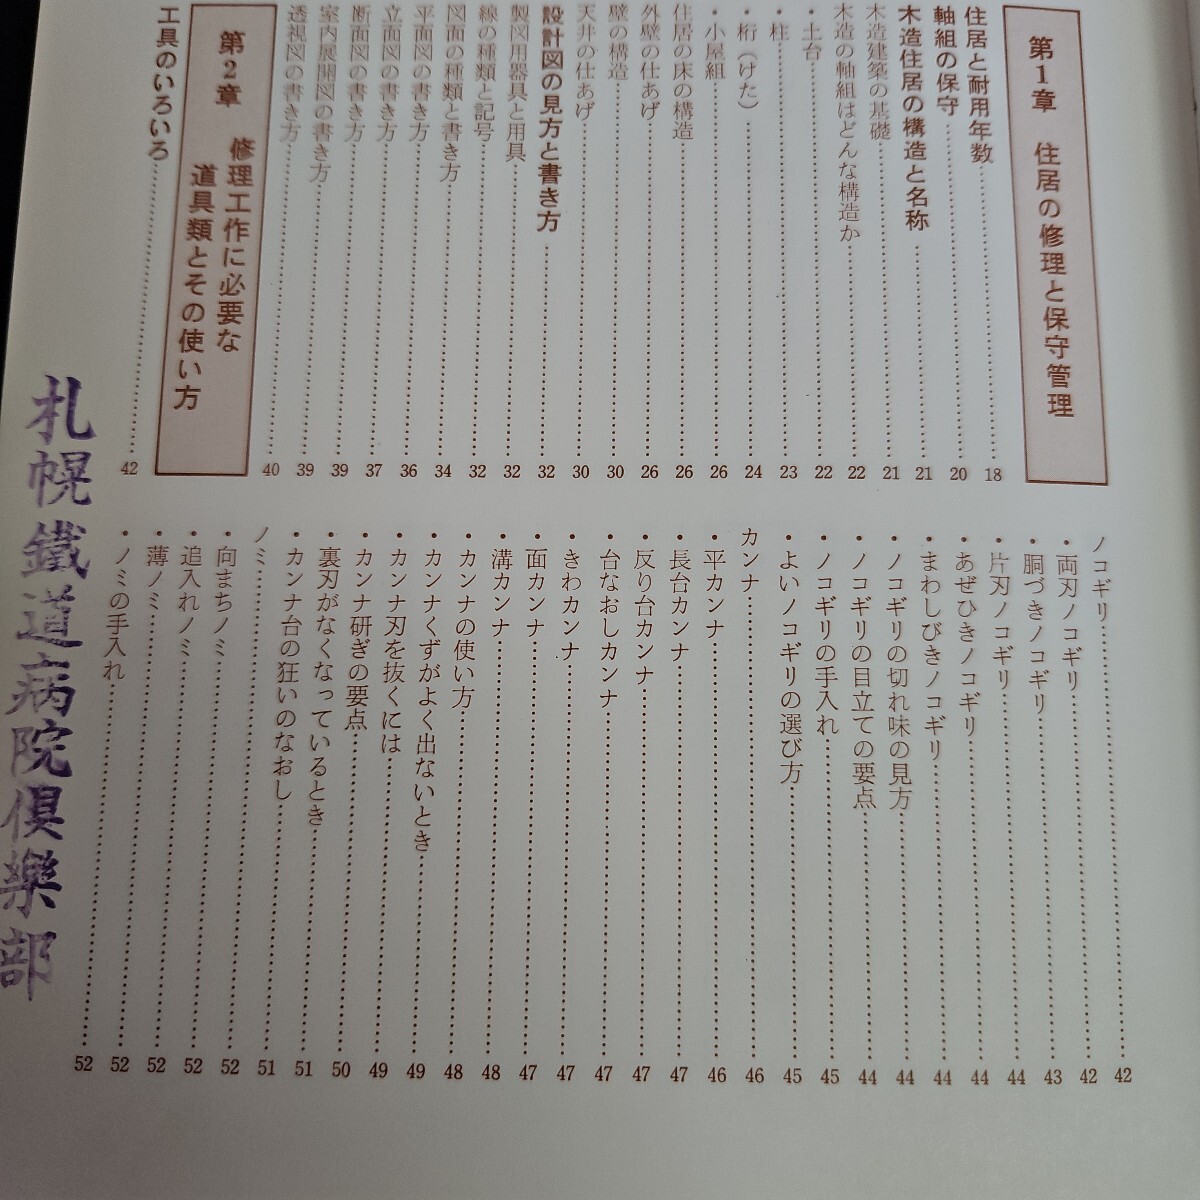 第1章 住居の修理と保守管理
住居と耐用年数……18
軸組の保守……20
木造住居の構造と名称……21
木造建築の基礎……21
木造の軸組はどんな構造か……22
・土台……22
・柱……23
・桁（けた）……24
・小屋組……26
住居の床の構造……26
外壁の仕あげ……26
壁の構造……30
天井の仕あげ……30
設計図の見方と書き方……32
製図用器具と用具……32
線の種類と記号……32
図面の種類と書き方……34
平面図の書き方……36
立面図の書き方……37
断面図の書き方……39
室内展開図の書き方……39
透視図の書き方……40
第2章 修理工作に必要な
道具類とその使い方
工具のいろいろ……42
ノコギリ……42
・両刃ノコギリ……42
・胴づきノコギリ……43
・片刃ノコギリ……44
・あぜひきノコギリ……44
・まわしびきノコギリ……44
・ノコギリの切れ味の見方……44
・ノコギリの目立ての要点……44
・ノコギリの手入れ……45
・よいノコギリの選び方……45
カンナ……46
・平カンナ……46
・長台カンナ……47
・反り台カンナ……47
・台なおしカンナ……47
・きわカンナ……47
・面カンナ……47
・溝カンナ……48
・カンナの使い方……48
・カンナくずがよく出ないとき……49
・カンナ刃を抜くには……49
・カンナ研ぎの要点……50
・裏刃がなくなっているとき……51
・カンナ台の狂いのなおし……51
ノミ……52
・向まちノミ……52
・追入れノミ……52
・薄ノミ……52
・ノミの手入れ……52
札幌鐵道病院倶樂部